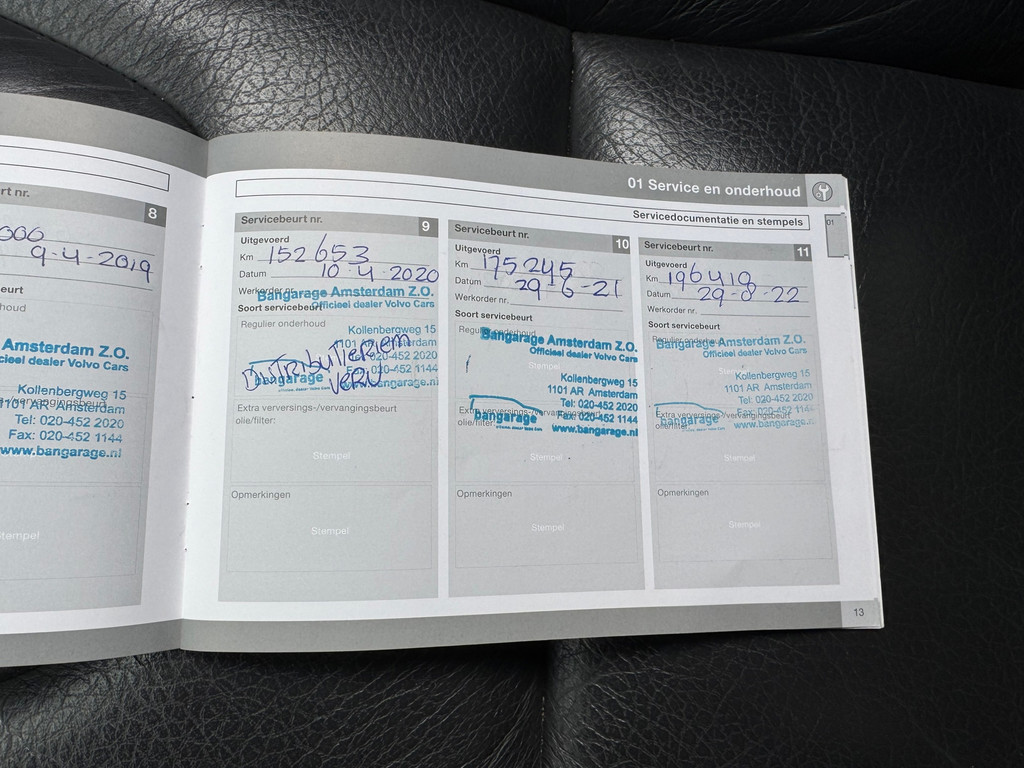 01 Service en onderhoud
Servicedocumentatie en stempels
01
8
9-4-2019
Amsterdam Z.O.
Kollenbergweg 15
1101 AR Amsterdam
Tel: 020-452 2020
Fax: 020-452 1144
www.bangarage.nl
Servicebeurt nr. 9
Uitgevoerd
Km 152653
Datum 10-4-2020
Werkorder nr.
Bangarage Amsterdam Z.O.
Officieel dealer Volvo Cars
Soort servicebeurt
Regulier onderhoud
Kollenbergweg 15
DISTRIBUTIERIEM
VERV
bangarage
Extra verversings-/vervangingsbeurt
olie/filter:
Stempel
Opmerkingen
Stempel
Servicebeurt nr. 10
Uitgevoerd
Km 175245
Datum 29-6-21
Werkorder nr.
Soort servicebeurt
Bangarage Amsterdam Z.O.
Officieel dealer Volvo Cars
Stempel
Kollenbergweg 15
1101 AR Amsterdam
Tel: 020-452 2020
Fax: 020-452 1144
bangarage
www.bangarage.nl
olie/filter:
Stempel
Opmerkingen
Stempel
Servicebeurt nr. 11
Uitgevoerd
Km 196419
Datum 29-8-22
Werkorder nr.
Soort servicebeurt
Regulier onderhoud
Bangarage Amsterdam Z.O.
Officieel dealer Volvo Cars
Kollenbergweg 15
1101 AR Amsterdam
Tel: 020-452 2020
Fax: 020-452 1144
Extra verversings-/vervangingsbeurt
bangarage
www.bangarage.nl
olie/filter:
Stempel
Opmerkingen
Stempel
13